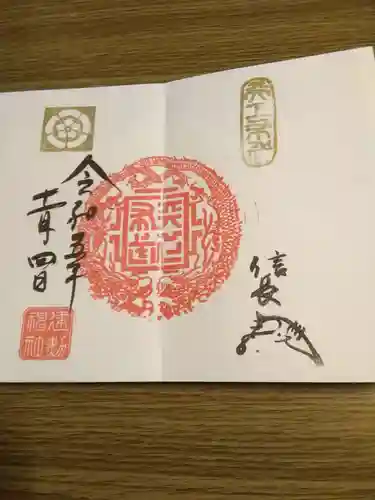 信長
天下
布武
令和五年
十一月四日
建勲
神社